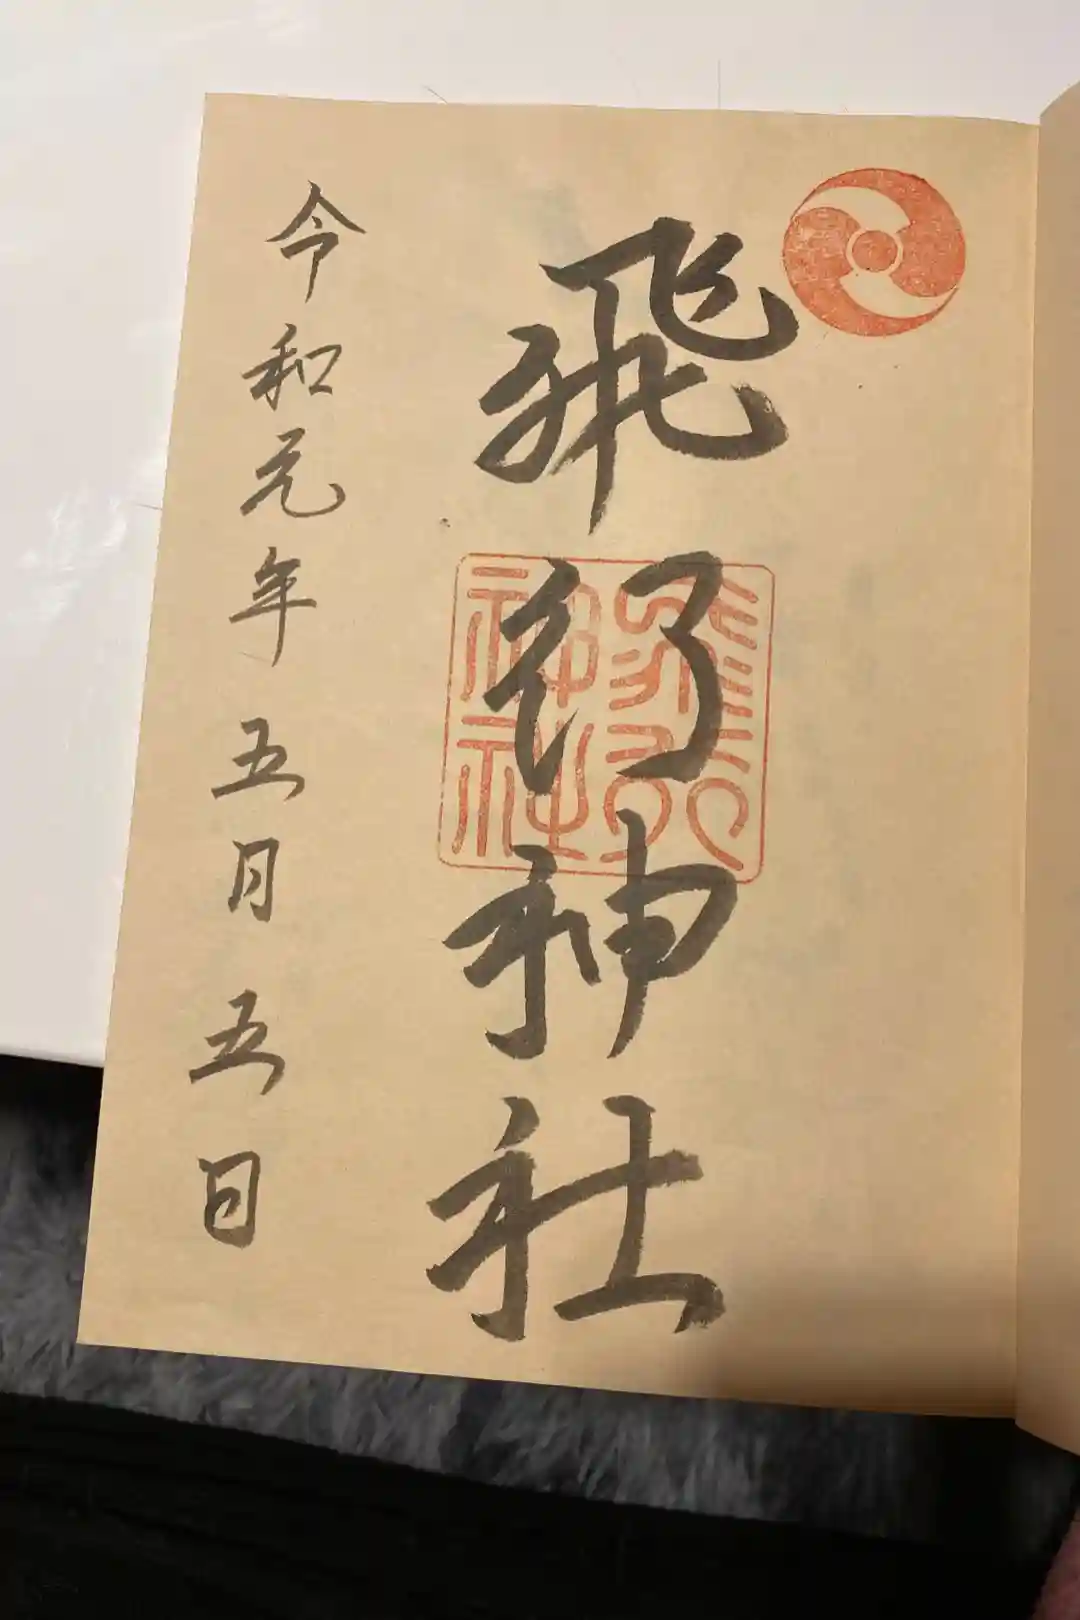 飛行神社
飛行神社
令和元年五月五日